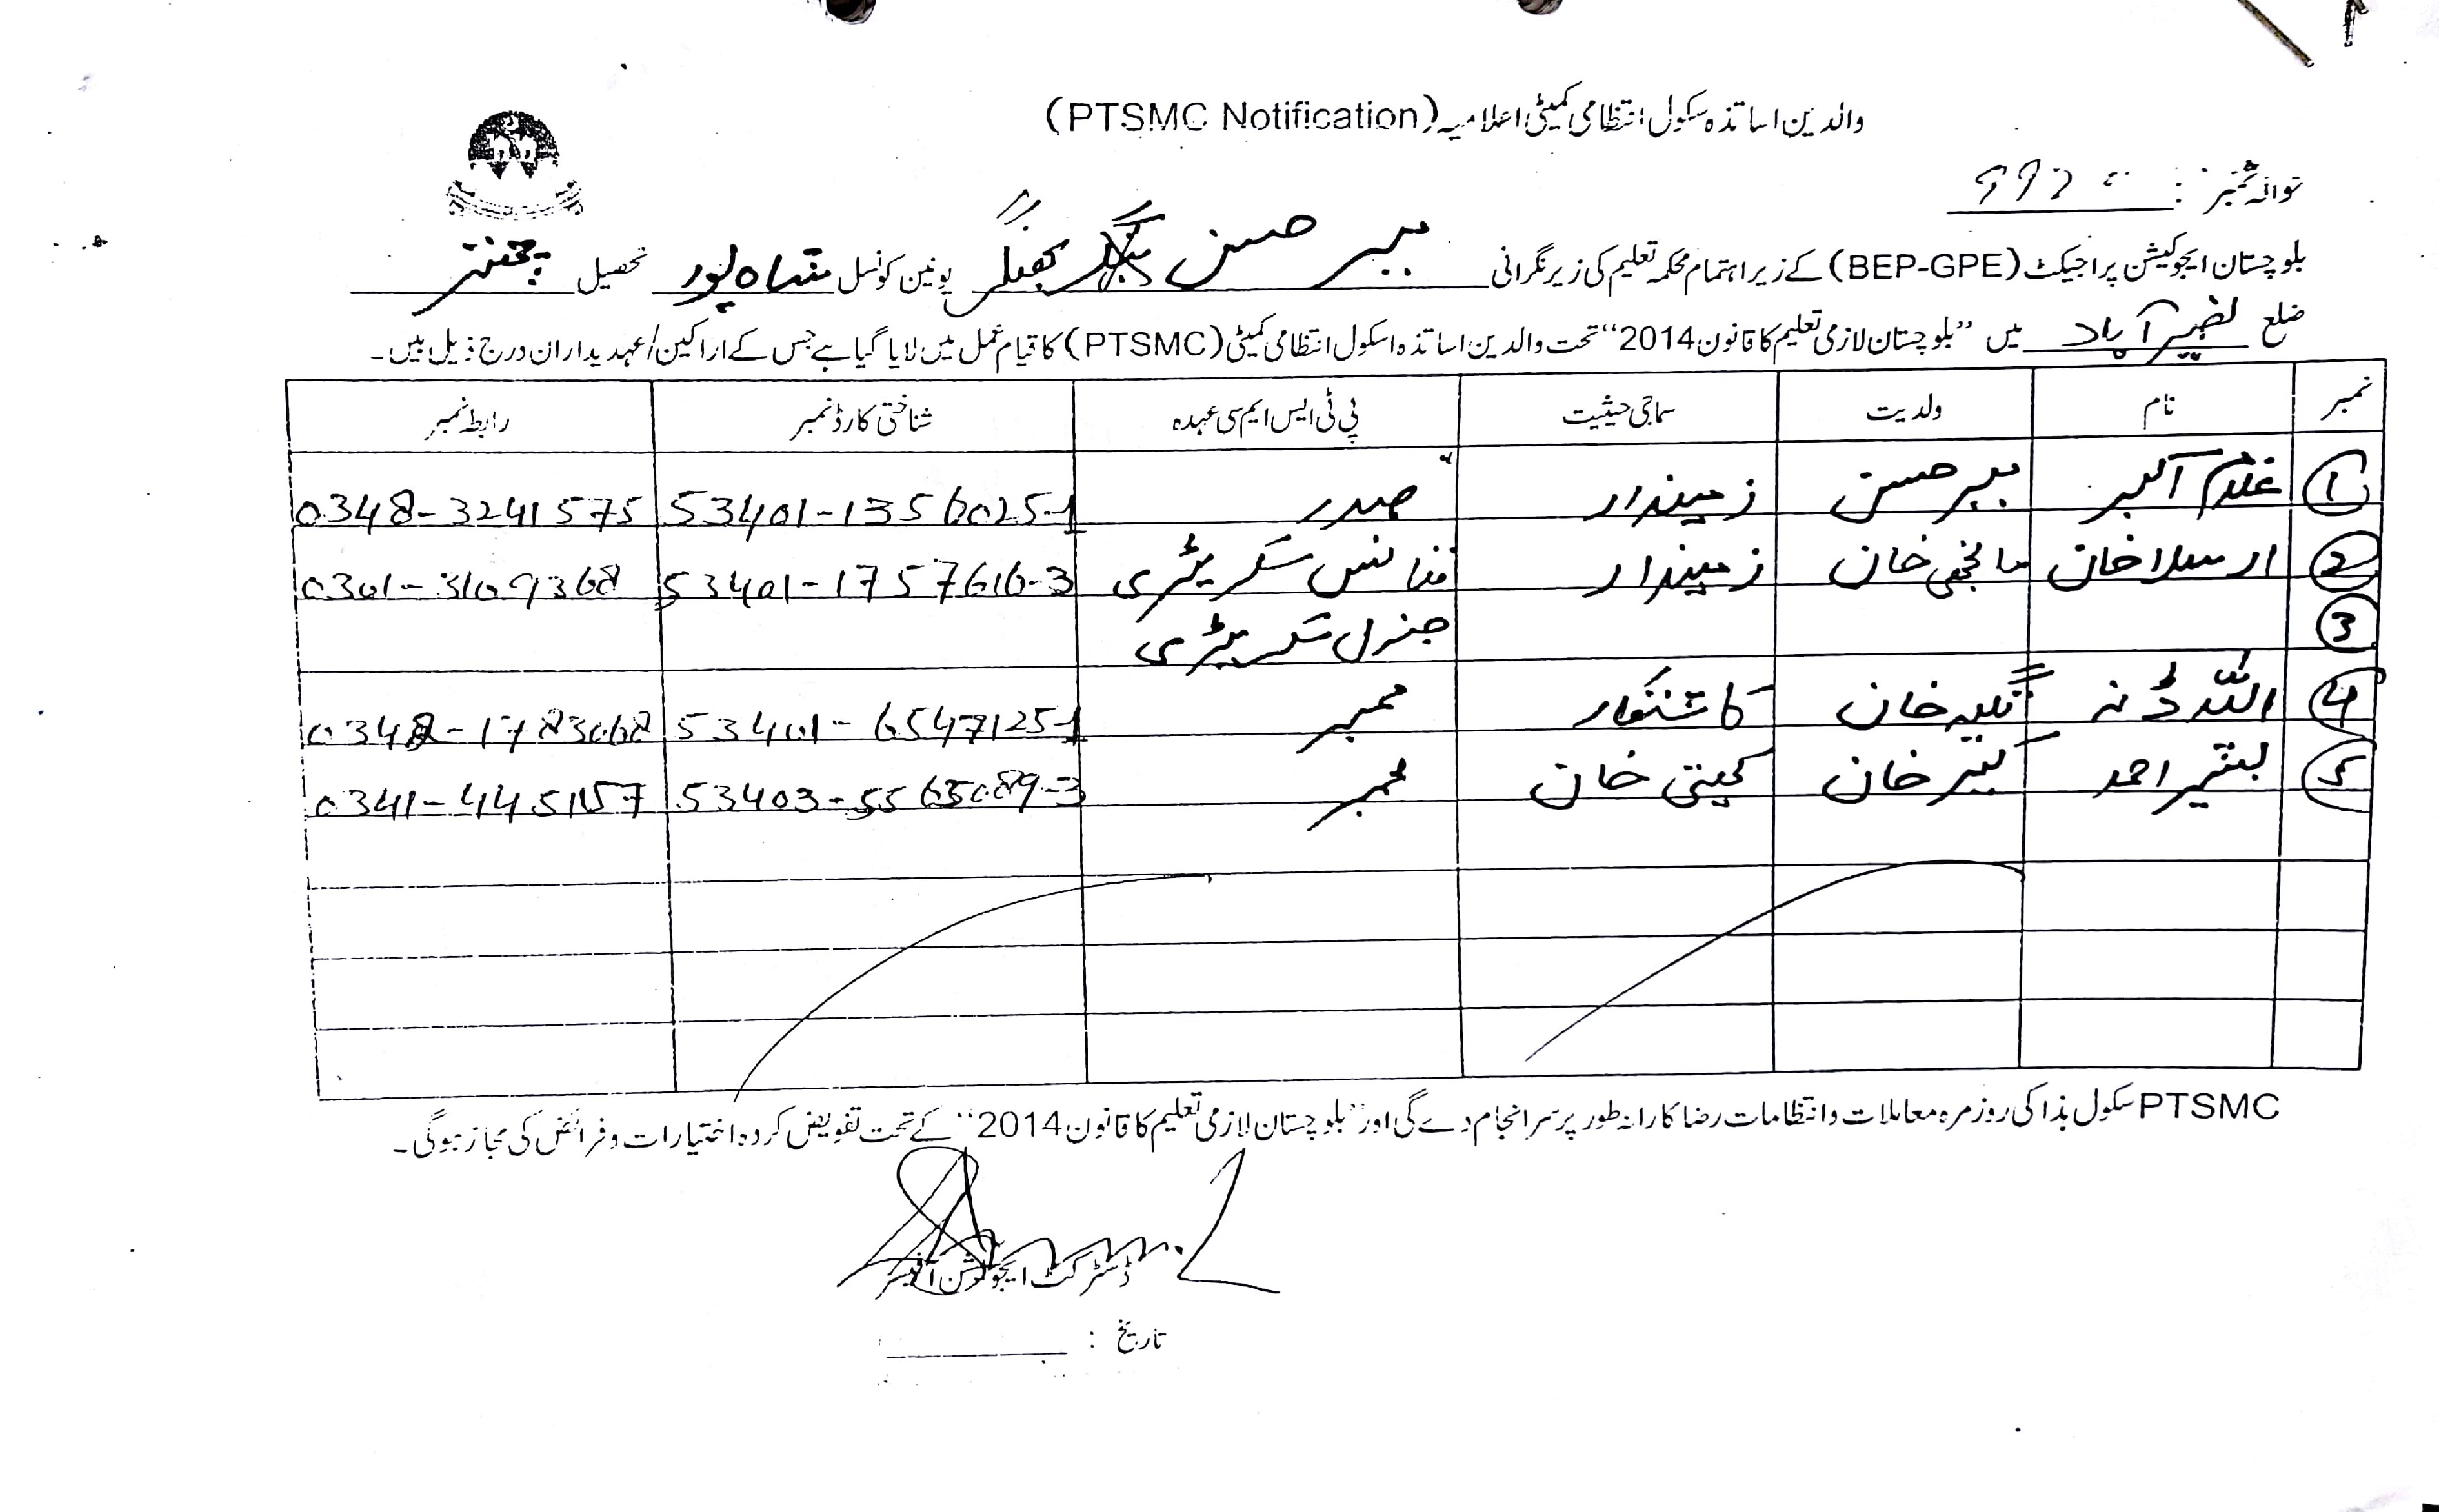 والدین اساتذہ سکول انتظامی کمیٹی اعلامیہ (PTSMC Notification)
حوالہ نمبر :
بلوچستان ایجوکیشن پراجیکٹ (BEP-GPE) کے زیر اہتمام محکمہ تعلیم کی زیر نگرانی ببر حسن یونین کونسل شاہ پور تحصیل چھتر
ضلع نصیر آباد میں "بلوچستان لازمی تعلیم کا قانون 2014" تحت والدین اساتذہ اسکول انتظامی کمیٹی (PTSMC) کا قیام عمل میں لایا گیا ہے جس کے اراکین/عہدیداران درج ذیل ہیں۔
نمبر نام ولدیت سماجی حیثیت پی ٹی ایس ایم سی عہدہ شناختی کارڈ نمبر رابطہ نمبر
1 غلام اکبر ببر حسن زمیندار صدر 53401-1356025-1 0348-3241575
2 ارسلا خان خان زمیندار فنانس سکریٹری 53401-1757616-3 0301-3169368
3 جنرل سکریٹری
4 اللہ ڈنہ خان کاشتکار ممبر 53401-6547125-1 0348-1783068
5 بشیر احمد کبیر خان خان ممبر 53403-5565089-3
PTSMC سکول ہذا کی روز مرہ معاملات و انتظامات رضا کارانہ طور پر سرانجام دے گی اور "بلوچستان لازمی تعلیم کا قانون 2014" کے تحت تفویض کردہ اختیارات و فرائض کی مجاز ہوگی۔
ڈسٹرکٹ ایجوکیشن آفیسر
تاریخ :